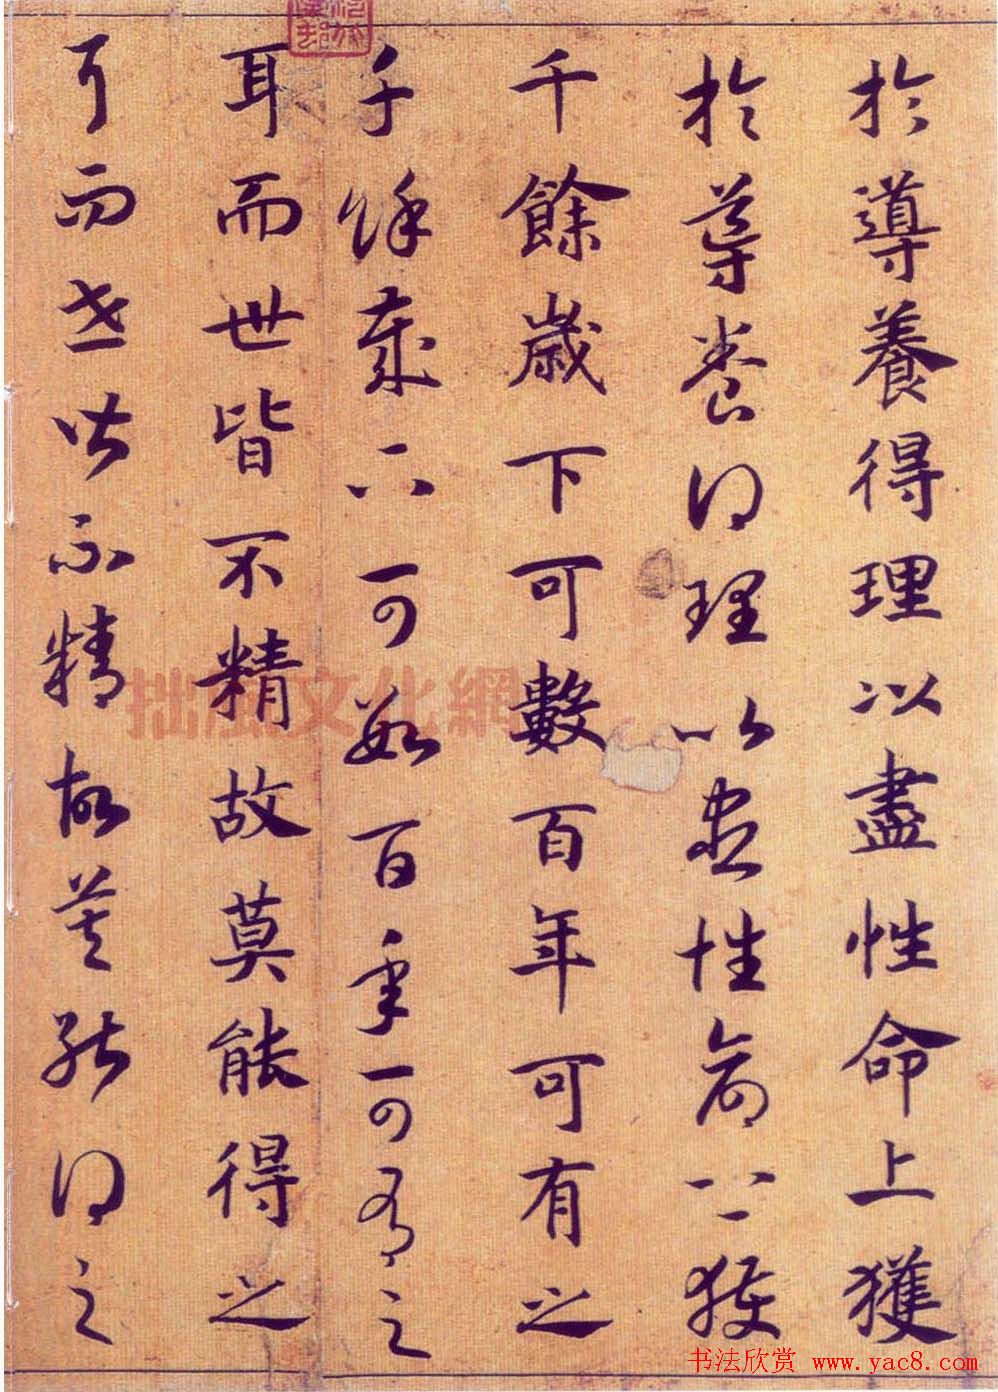 於導養得理以盡性命上獲
於導養得理以盡性命上獲
千餘歲下可數百年可有之
千餘歲下可數百年可有之
耳而世皆不精故莫能得之
耳而世皆不精故莫能得之
拙風文化網
书法欣赏 www.yac8.com